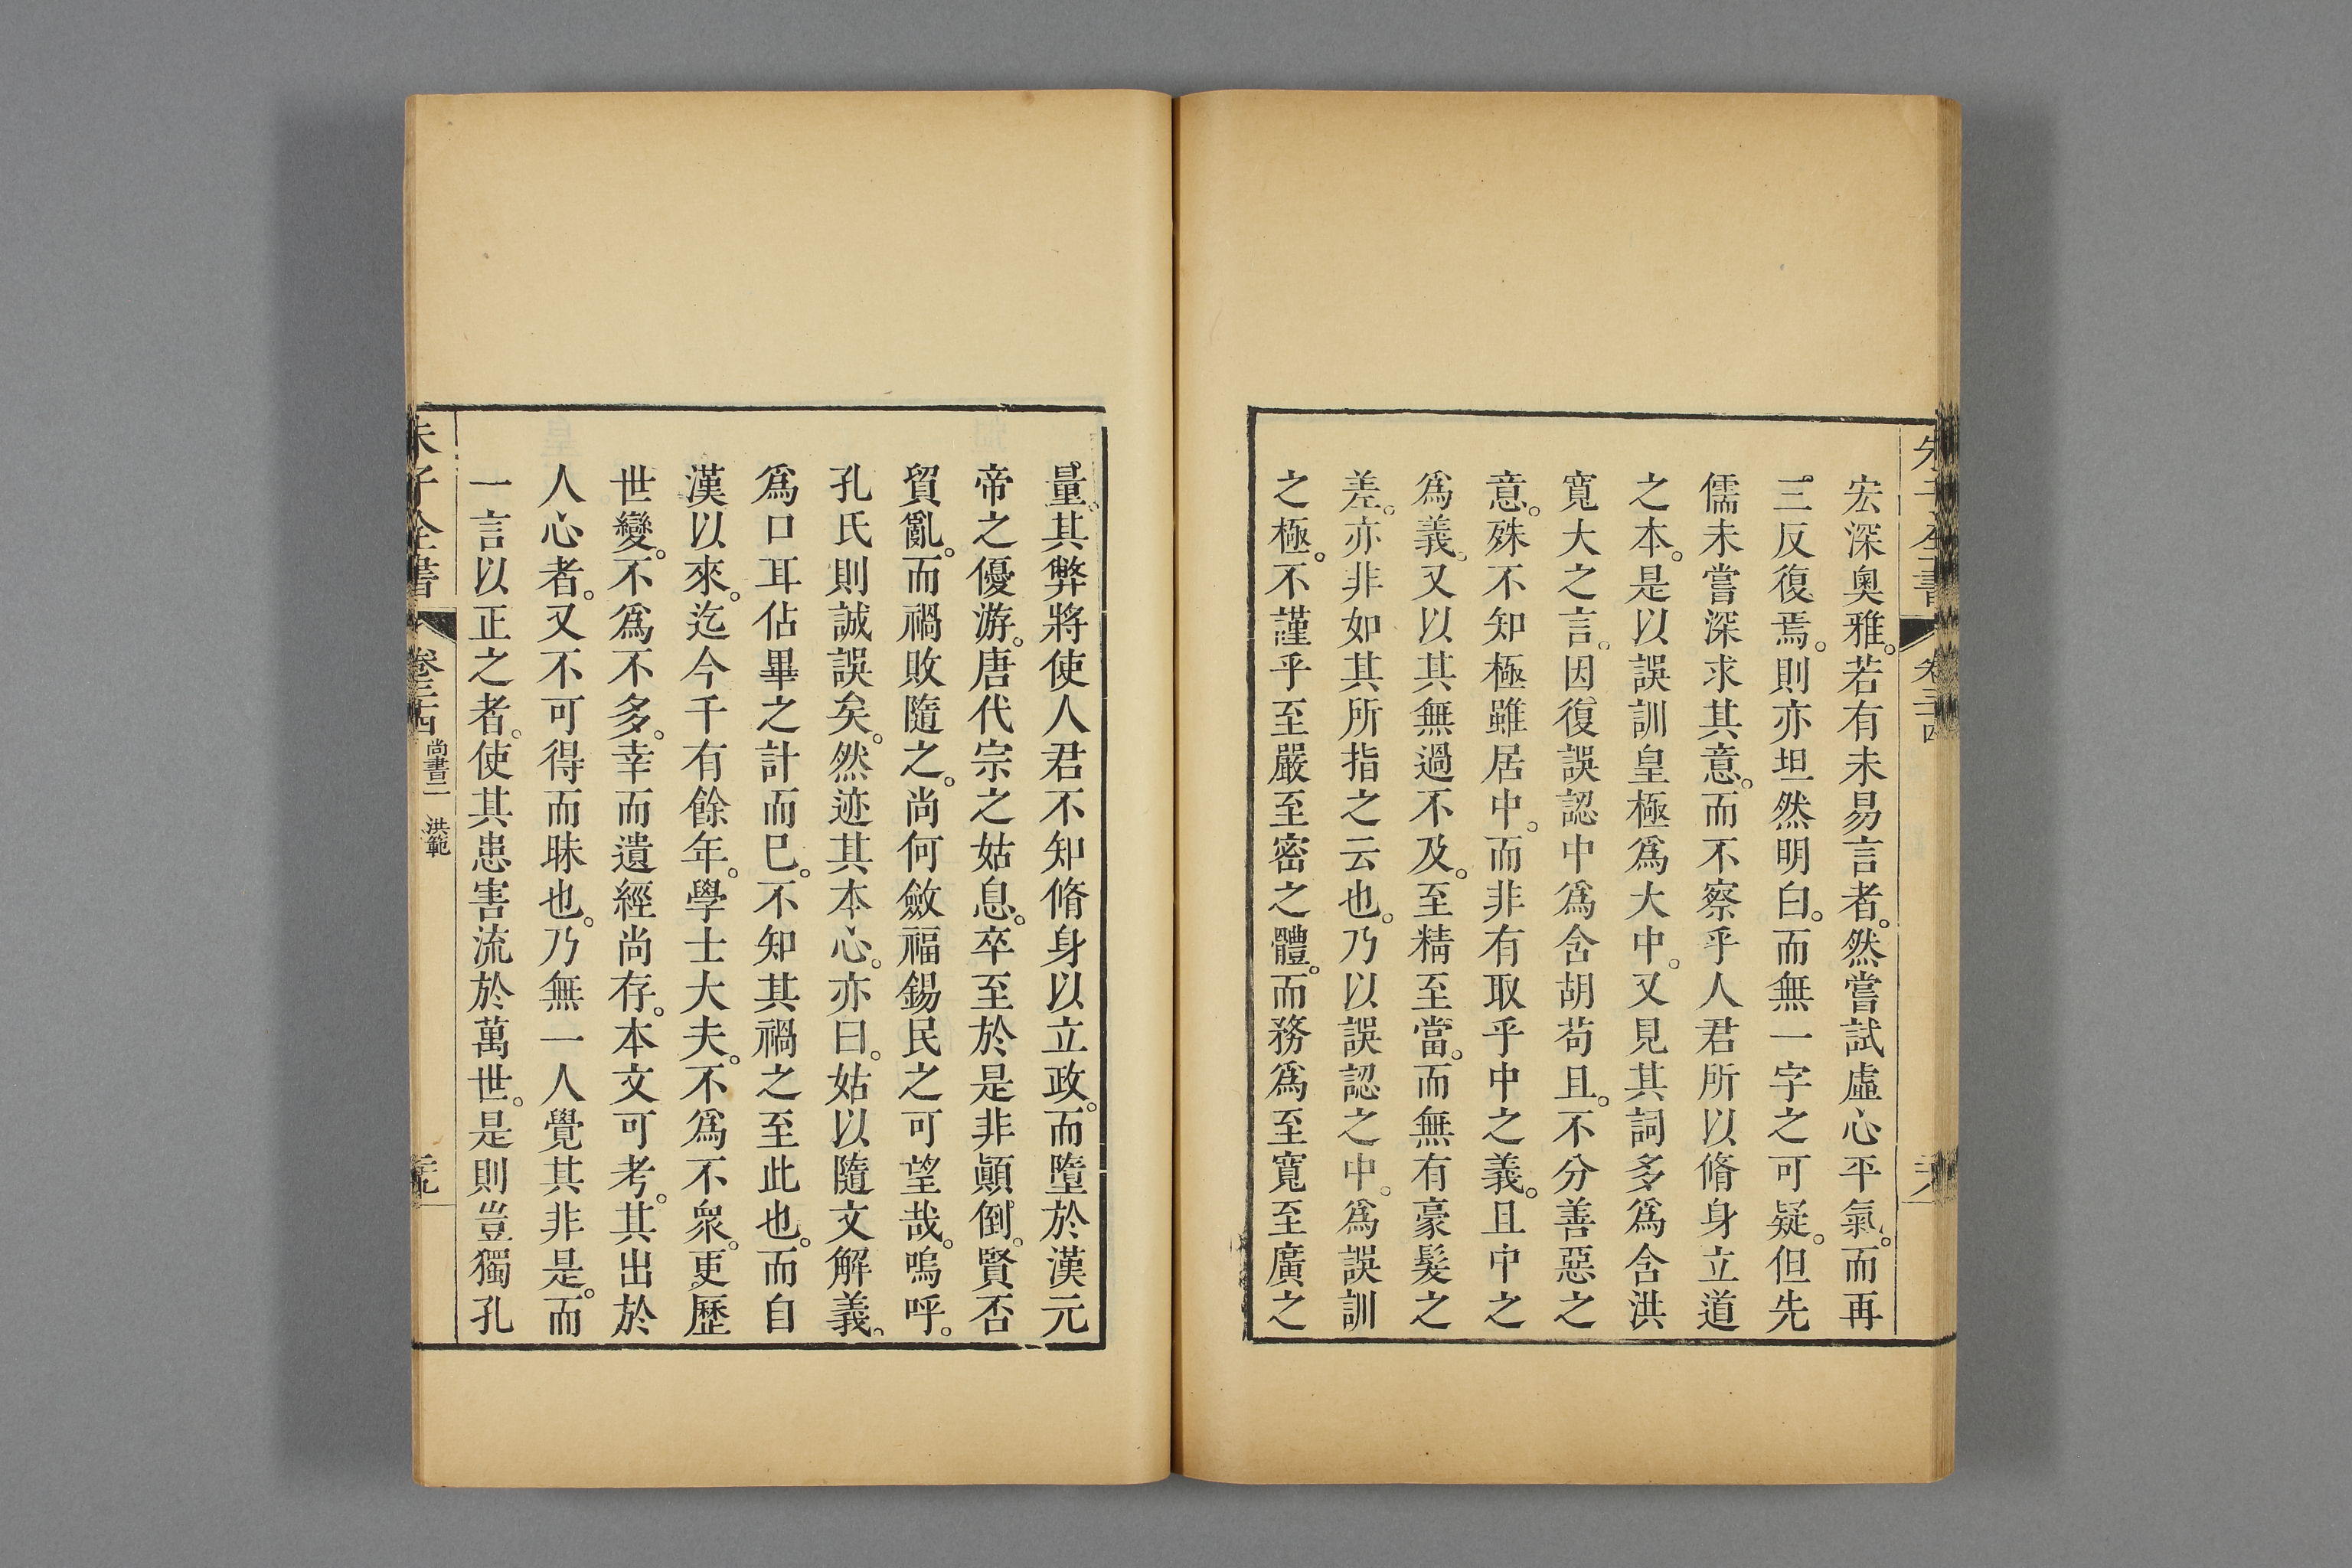 朱子全書 卷三十四
宏深奧雅。若有未易言者。然嘗試虛心平氣。而再
三反復焉。則亦坦然明白。而無一字之可疑。但先
儒未嘗深求其意。而不察乎人君所以脩身立道
之本。是以誤訓皇極爲大中。又見其詞多爲含洪
寬大之言。因復誤認中爲含胡苟且。不分善惡之
意。殊不知極雖居中。而非有取乎中之義。且中之
爲義。又以其無過不及。至精至當。而無有豪髮之
差。亦非如其所指之云也。乃以誤認之中。爲誤訓
之極。不謹乎至嚴至密之體。而務爲至寬至廣之
量。其弊將使人君不知脩身以立政。而墮於漢元
帝之優游。唐代宗之姑息。卒至於是非顚倒。賢否
貿亂。而禍敗隨之。尚何斂福錫民之可望哉。嗚呼。
孔氏則誠誤矣。然迹其本心。亦曰。姑以隨文解義。
爲口耳佔畢之計而已。不知其禍之至此也。而自
漢以來。迄今千有餘年。學士大夫。不爲不衆。更歷
世變。不爲不多。幸而遺經尚存。本文可考。其出於
人心者。又不可得而昧也。乃無一人覺其非是。而
一言以正之者。使其患害流於萬世。是則豈獨孔
朱子全書 卷三十四 尚書二 洪範